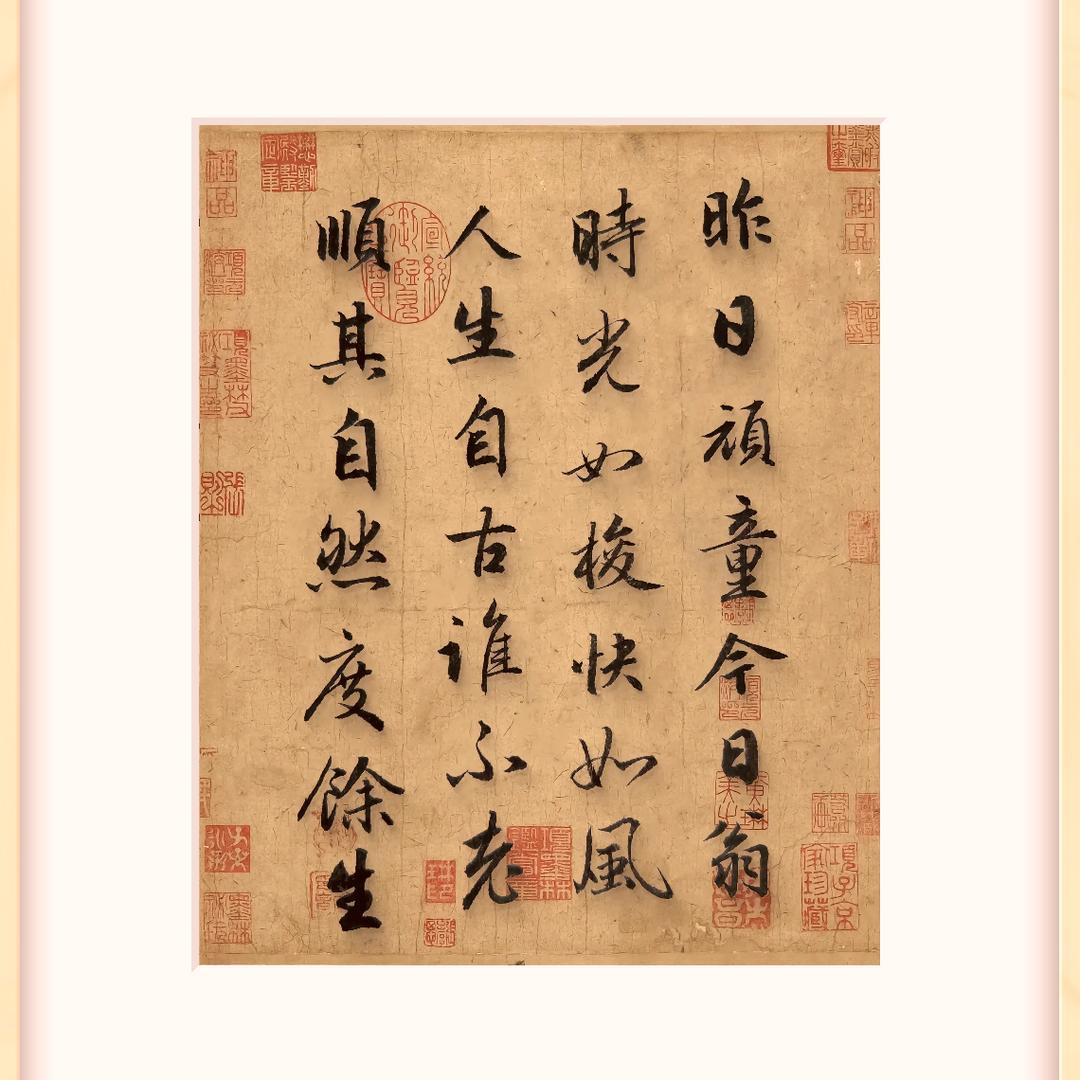 昨日頑童今日翁
時光如梭快如風
人生自古誰不老
順其自然度餘生